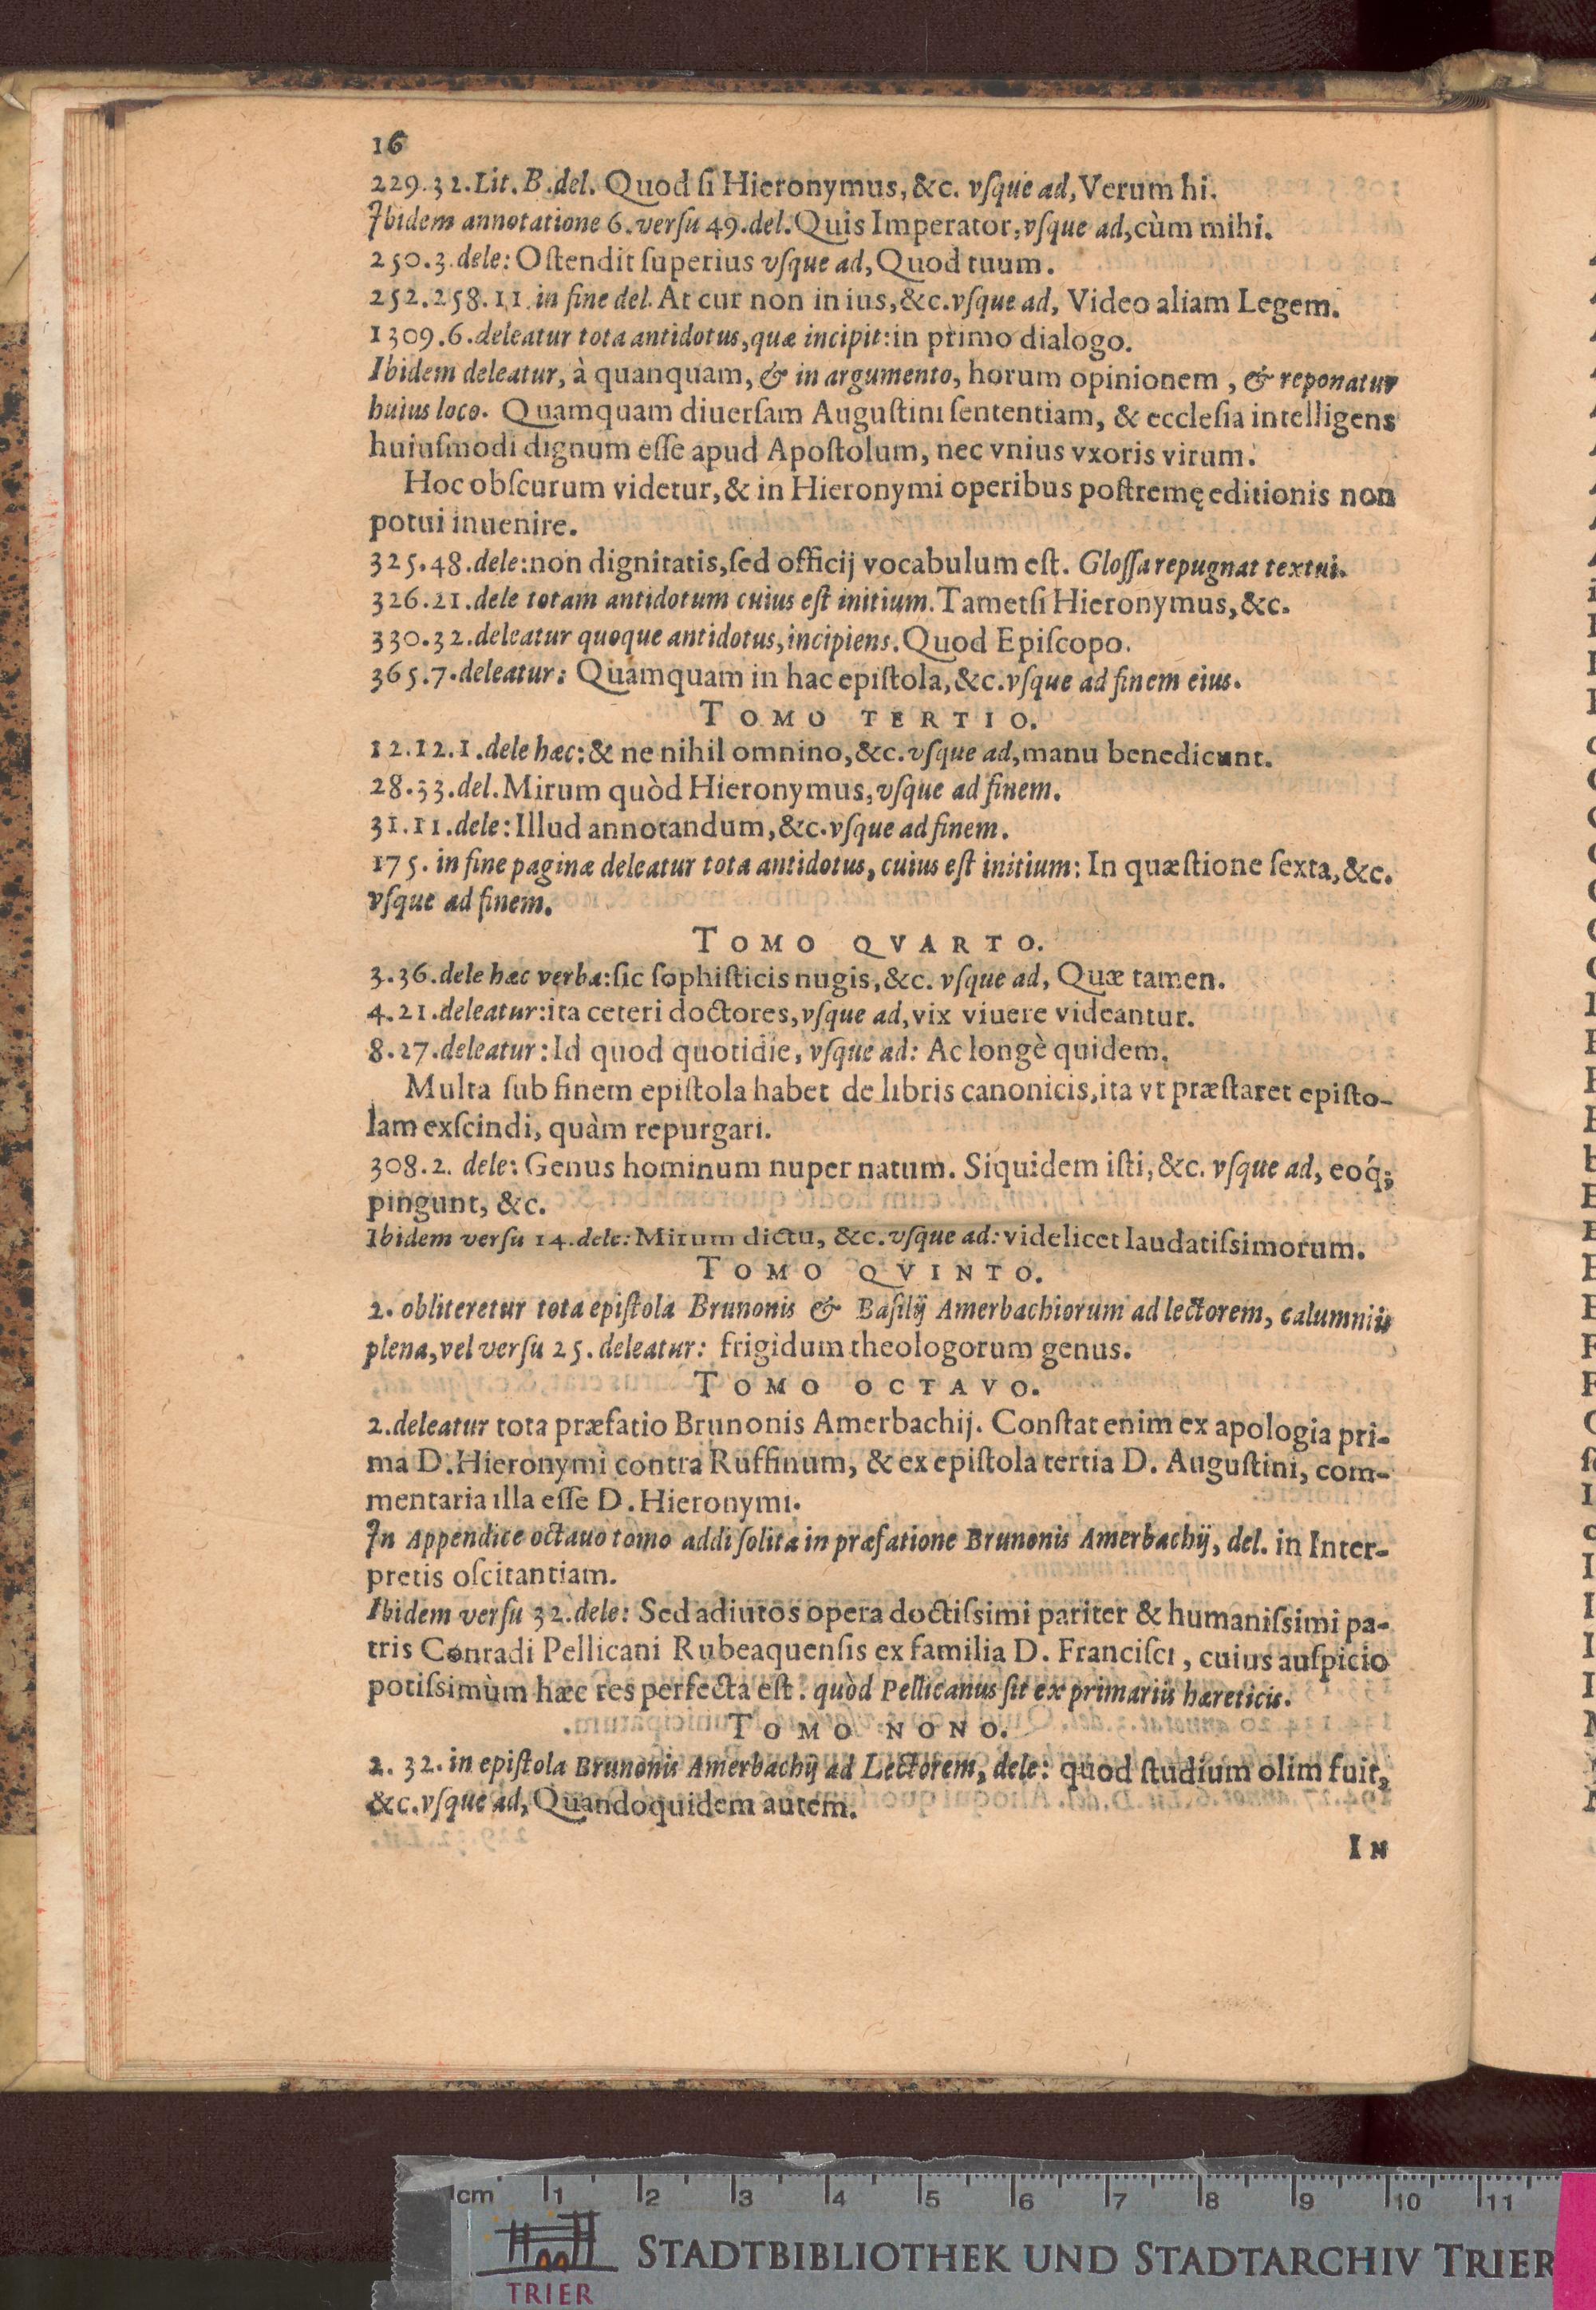 16
229.32.Lit.B.del. Quod ſi Hieronymus,&c. vſque ad,Verum hi.
Ibidem annotatione 6.verſu 49.del.Quis Imperator,vſque ad,cùm mihi.
250.3.dele: Oſtendit ſuperius vſque ad,Quod tuum.
252.258.11.in fine del. At cur non in ius,&c.vſque ad, Video aliam Legem.
1309.6.deleatur tota antidotus,quæ incipit:in primo dialogo.
Ibidem deleatur, à quanquam, & in argumento, horum opinionem, & reponatur
huius loco. Quamquam diuerſam Auguſtini ſententiam, & eccleſia intelligens
huiuſmodi dignum eſſe apud Apoſtolum, nec vnius vxoris virum.
Hoc obſcurum videtur,& in Hieronymi operibus poſtremę editionis non
potui inuenire.
325.48.dele:non dignitatis,ſed officij vocabulum eſt. Gloſſa repugnat textui.
326.21.dele totam antidotum cuius eſt initium.Tametſi Hieronymus,&c.
330.32.deleatur quoque antidotus,incipiens.Quod Epiſcopo.
365.7.deleatur: Quamquam in hac epiſtola,&c.vſque ad finem eius.
TOMO TERTIO.
12.12.1.dele hæc:& ne nihil omnino,&c.vſque ad,manu benedicunt.
28.33.del.Mirum quòd Hieronymus,vſque ad finem.
31.11.dele:Illud annotandum,&c.vſque ad finem.
175. in fine paginæ deleatur tota antidotus, cuius eſt initium: In quæſtione ſexta,&c.
vſque ad finem.
TOMO QVARTO.
3.36.dele hæc verba:ſic ſophiſticis nugis,&c. vſque ad, Quæ tamen.
4.21.deleatur:ita ceteri doctores,vſque ad,vix viuere videantur.
8.27.deleatur:Id quod quotidie, vſque ad: Ac longè quidem.
Multa ſub finem epiſtola habet de libris canonicis,ita vt præſtaret epiſto-
lam exſcindi, quàm repurgari.
308.2. dele: Genus hominum nuper natum. Siquidem iſti,&c. vſque ad, eoq́;
pingunt, &c.
Ibidem verſu 14.dele: Mirum dictu, &c.vſque ad: videlicet laudatiſsimorum.
TOMO QVINTO.
2. obliteretur tota epiſtola Brunonis & Baſilij Amerbachiorum ad lectorem, calumniis
plena,vel verſu 25.deleatur: frigidum theologorum genus.
TOMO OCTAVO.
2.deleatur tota præfatio Brunonis Amerbachij. Conſtat enim ex apologia pri-
ma D.Hieronymi contra Ruffinum, & ex epiſtola tertia D. Auguſtini, com-
mentaria illa eſſe D.Hieronymi.
In Appendice octauo tomo addi ſolita in præfatione Brunonis Amerbachij, del. in Inter-
pretis oſcitantiam.
Ibidem verſu 32.dele: Sed adiutos opera doctiſsimi pariter & humaniſsimi pa-
tris Conradi Pellicani Rubeaquenſis ex familia D. Franciſci, cuius auſpicio
potiſsimùm hæc res perfecta eſt. quòd Pellicanus ſit ex primariis hæreticis.
TOMO NONO.
2. 32. in epiſtola Brunonis Amerbachij ad Lectorem, dele: quod ſtudium olim fuit,
&c.vſque ad, Quandoquidem autem.
IN
cm 1 2 3 4 5 6 7 8 9 10 11
STADTBIBLIOTHEK UND STADTARCHIV TRIER
TRIER